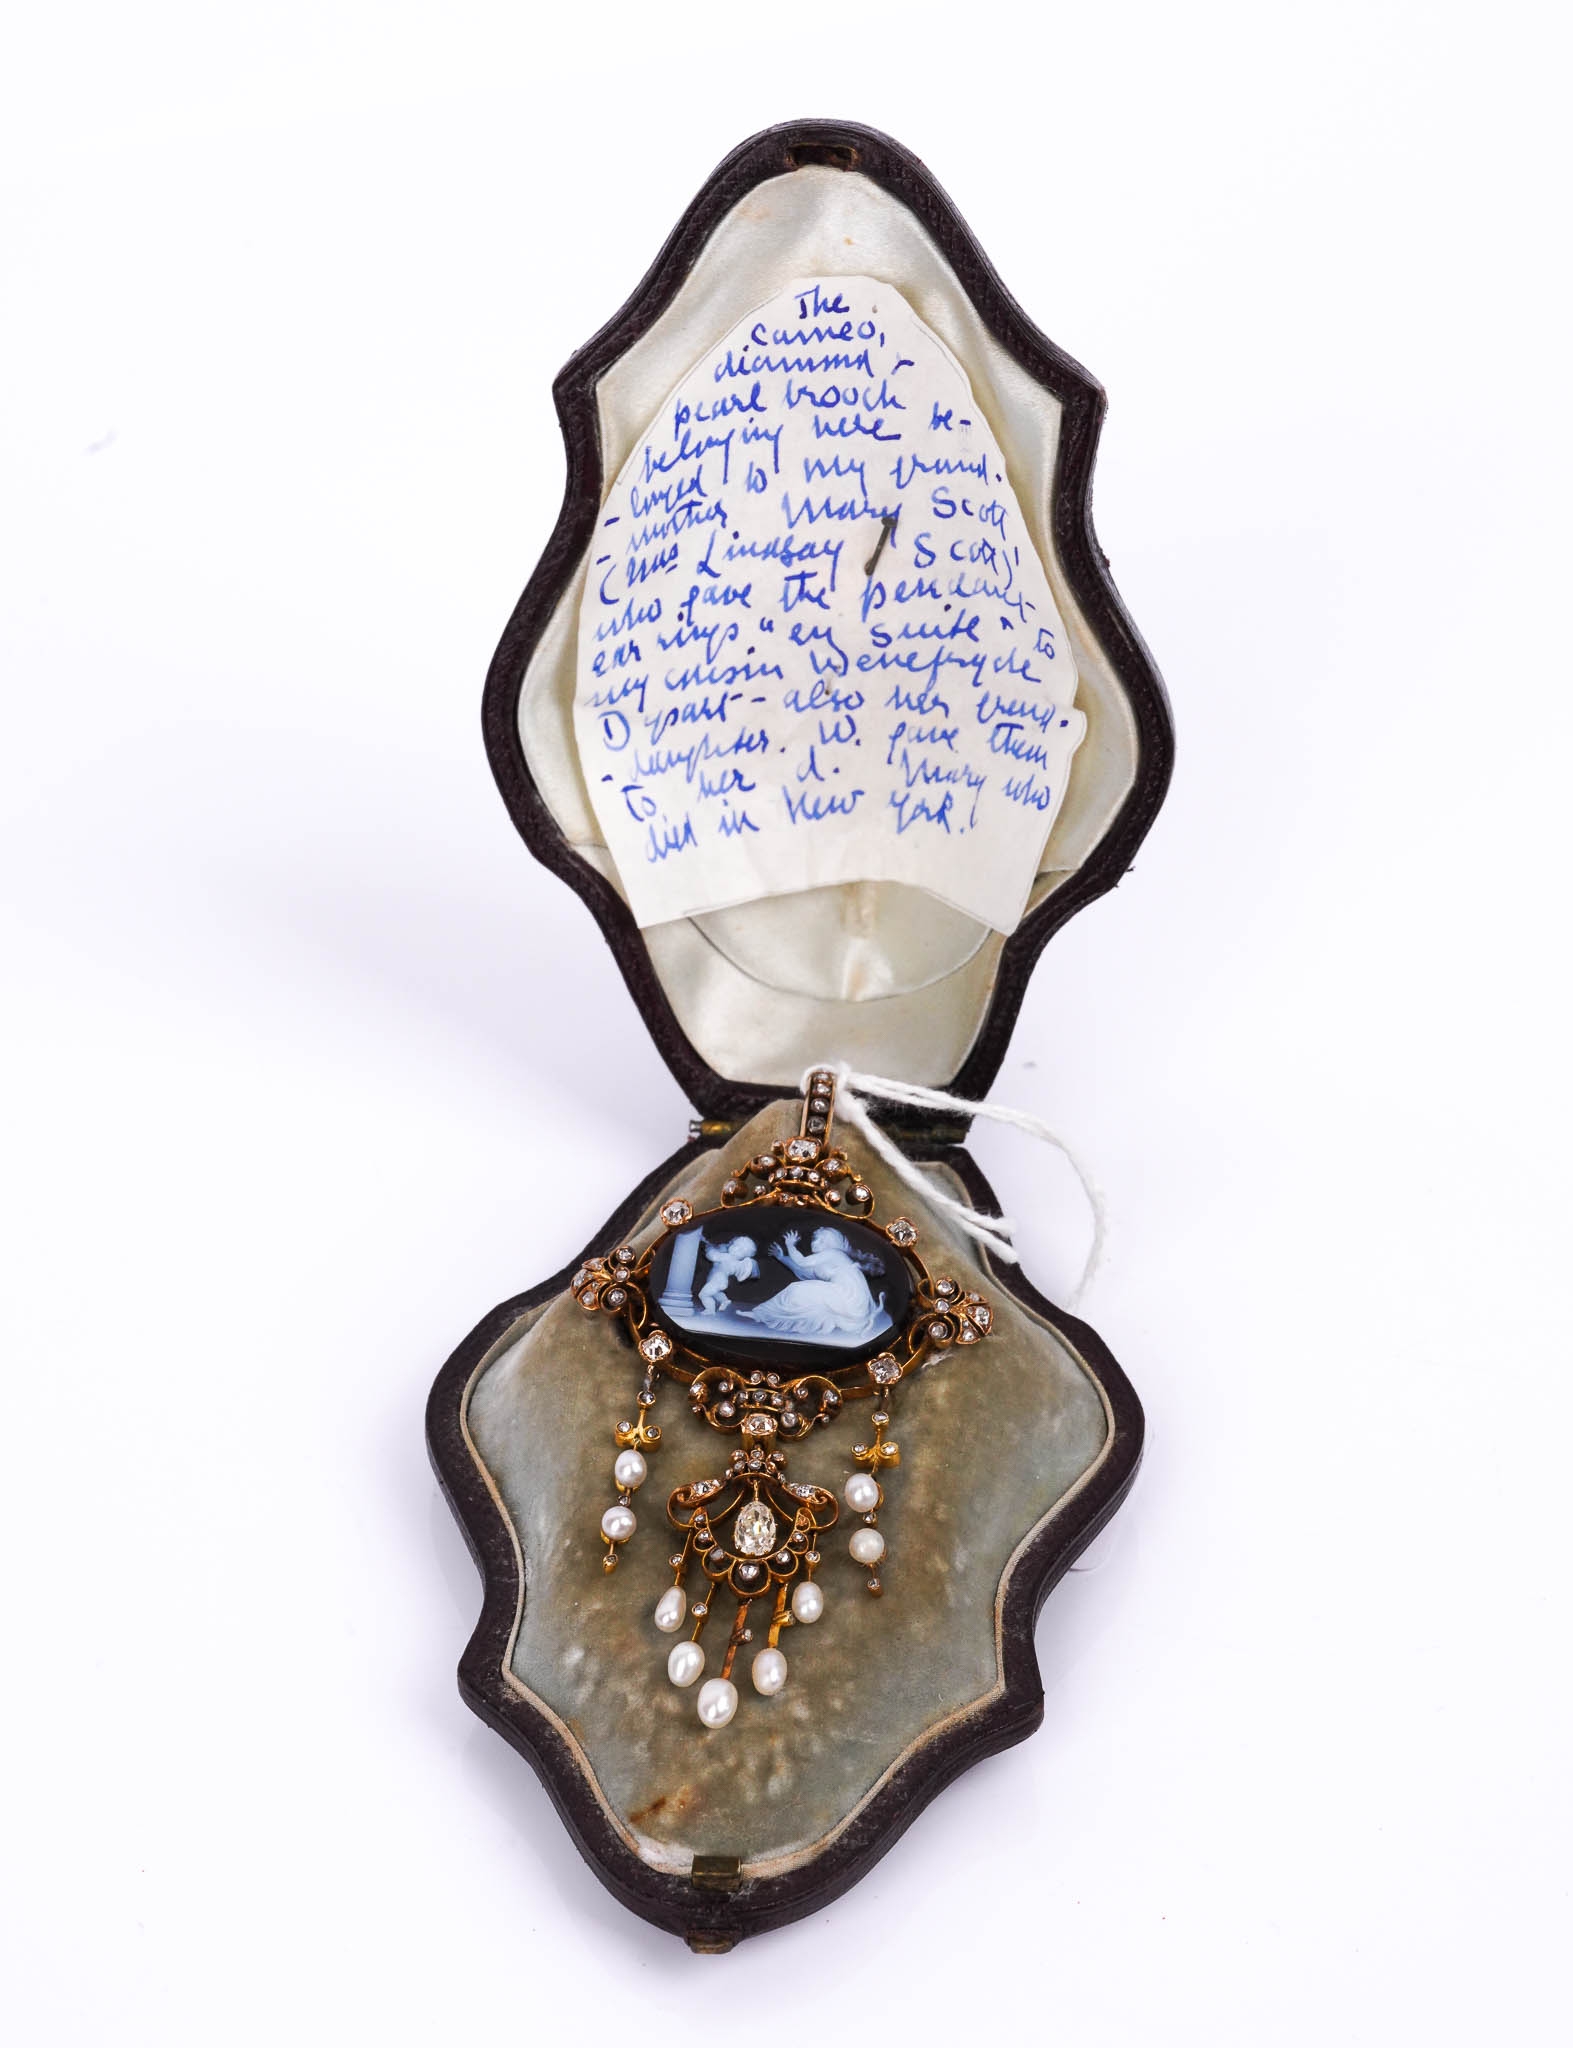 The
cameo,
diamond -
pearl brooch
belonging here be-
- longed to my grand.
- mother Mary Scott
(Mrs Lindsay Scott)
who gave the pendant
ear rings "en suite" to
my cousin Wenefryde
D - also her grand.
- daughter. W. gave them
to her d. Mary who
died in New York.